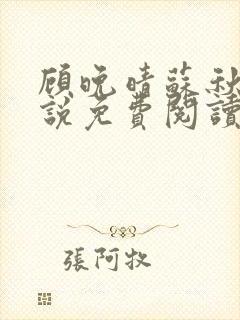 顾晚晴蘇秋
說免費閱讀
張阿牧